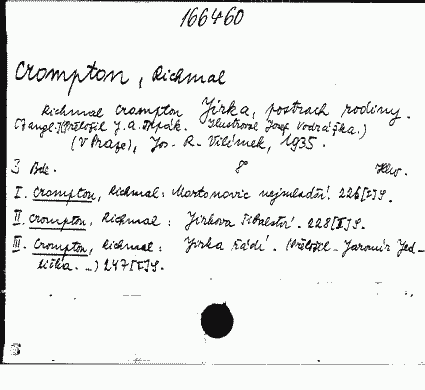 166460
Crompton, Richmal
Richmal Crompton Jirka, postrach rodiny.
(Z angl. přeložil J. A. Ilustroval Josef Vodrážka.)
(V Praze), Jos. R. Vilímek, 1935.
3 Bde. 8
I. Crompton, Richmal: Martonovic nejmladší. 226 [I] S.
II. Crompton, Richmal: Jirkova 228 [I] S.
III. Crompton, Richmal: Jirka řádí. (Přeložil Jaromír Jed-
lička. ..) 247 [I] S.